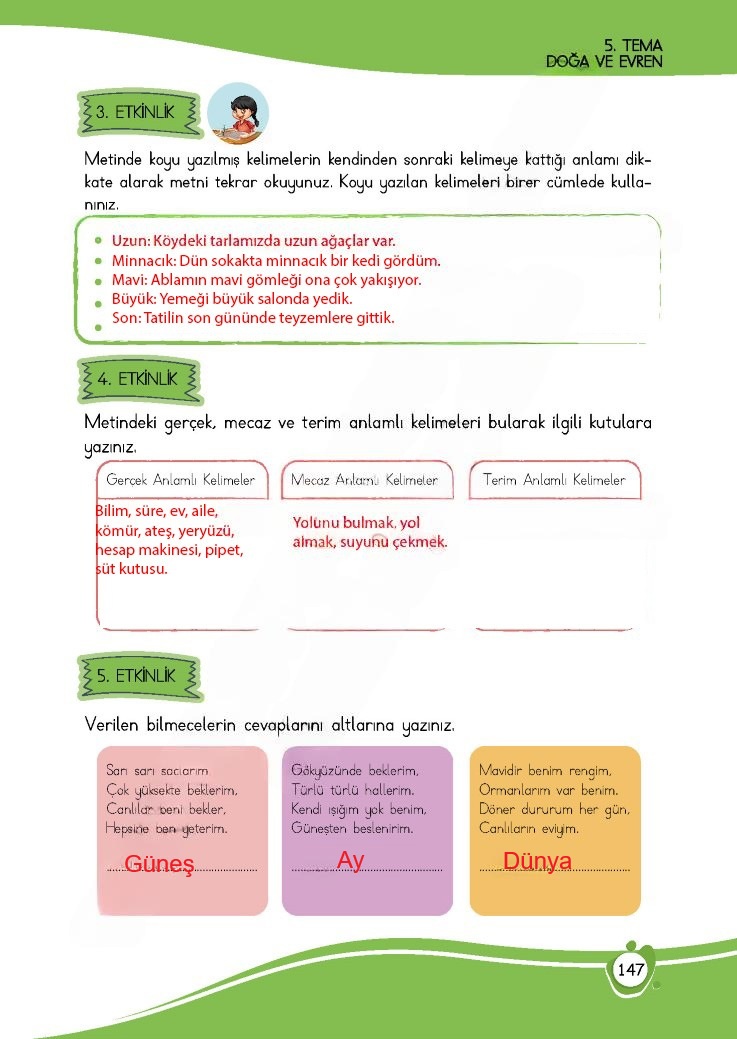 5. TEMA
DOĞA VE EVREN
3. ETKİNLİK
Metinde koyu yazılmış kelimelerin kendinden sonraki kelimeye kattığı anlamı dik-
kate alarak metni tekrar okuyunuz. Koyu yazılan kelimeleri birer cümlede kulla-
nınız.
Uzun: Köydeki tarlamızda uzun ağaçlar var.
Minnacık: Dün sokakta minnacık bir kedi gördüm.
Mavi: Ablamın mavi gömleği ona çok yakışıyor.
Büyük: Yemeği büyük salonda yedik.
Son: Tatilin son gününde teyzemlere gittik.
4. ETKİNLİK
Metindeki gerçek, mecaz ve terim anlamlı kelimeleri bularak ilgili kutulara
yazınız.
Gerçek Anlamlı Kelimeler
Bilim, süre, ev, aile,
kömür, ateş, yeryüzü,
hesap makinesi, pipet,
süt kutusu.
Mecaz Anlamlı Kelimeler
Yolunu bulmak, yol
almak, suyunu çekmek.
Terim Anlamlı Kelimeler
5. ETKİNLİK
Verilen bilmecelerin cevaplarını altlarına yazınız.
Sarı sarı saçlarım
Çok yüksekte beklerim,
Canlılar beni bekler,
Hepsine ben yeterim.
Güneş
Gökyüzünde beklerim,
Türlü türlü hallerim.
Kendi ışığım yok benim,
Güneşten beslenirim.
Ay
Mavidir benim rengim,
Ormanlarım var benim.
Döner dururum her gün,
Canlıların eviyim.
Dünya
147